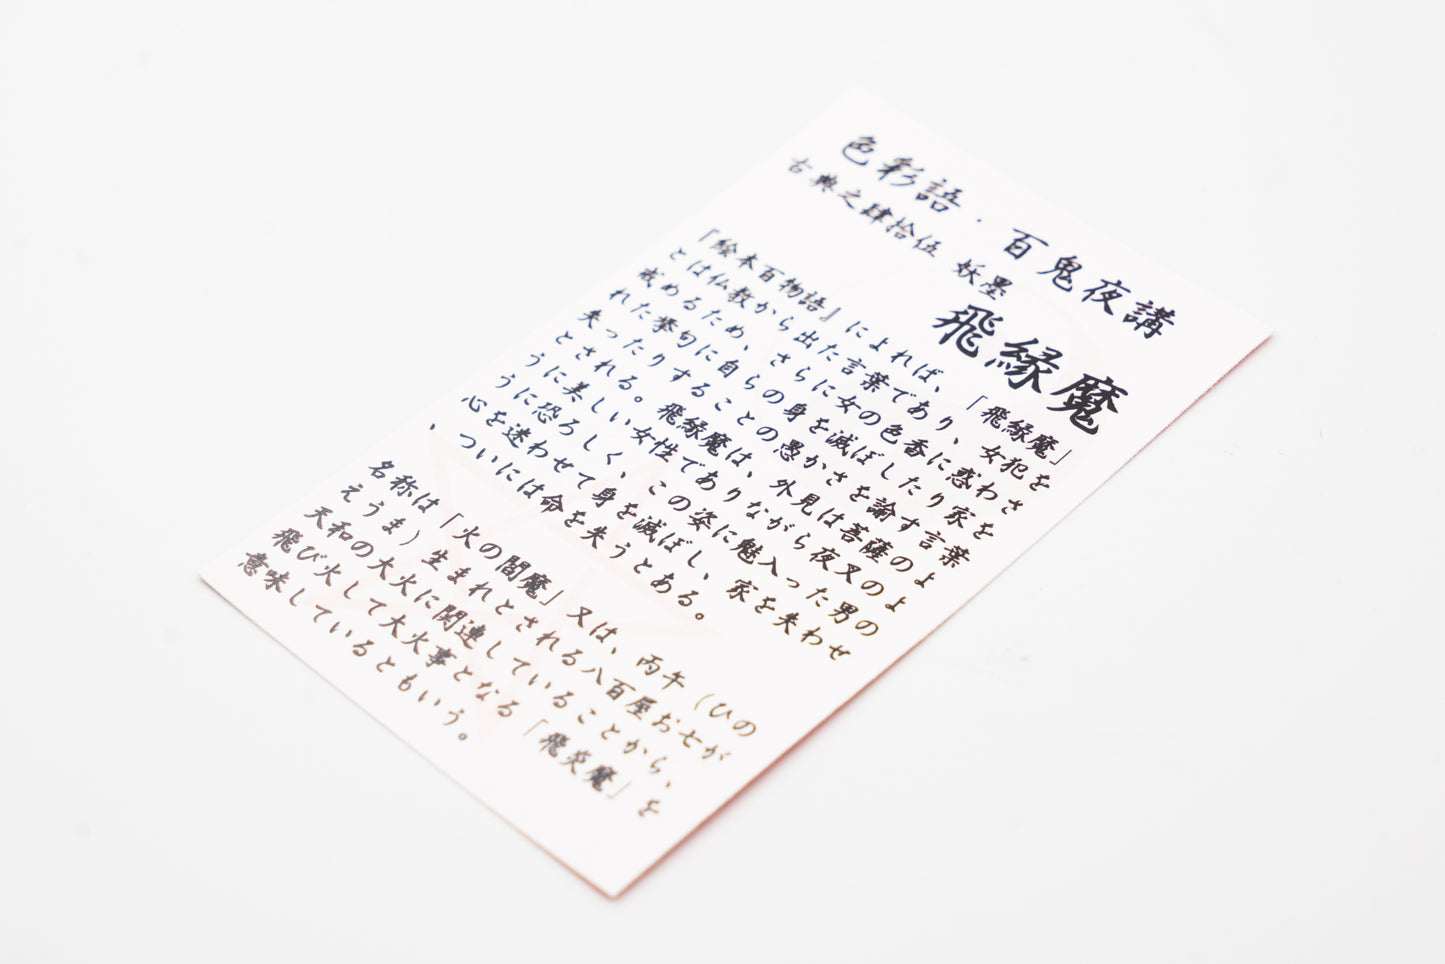 色彩語・百鬼夜講
古典之肆拾伍 妖墨 飛縁魔
『絵本百物語』によれば、「飛縁魔」
とは仏教から出た言葉であり、女犯を
戒めるため、さらに女の色香に惑わさ
れた挙句に自らの身を滅ぼしたり家を
失ったりすることの愚かさを諭す言葉
とされる。飛縁魔は、外見は菩薩のよ
うに美しい女性でありながら夜叉のよ
うに恐ろしく、この姿に魅入った男の
心を迷わせて身を滅ぼし、家を失わせ
、ついには命を失うとある。
名称は「火の閻魔」又は、丙午（ひの
えうま）生まれとされる八百屋お七が
天和の大火に関連していることから、
飛び火して大火事となる「飛炎魔」を
意味しているともいう。